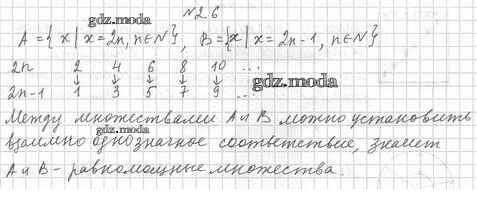 №26
gdz.moda
A = {x | x = 2n, n∈N}, B = {x | x = 2n-1, n∈N}
2n 2 4 6 8 10 ...
↓ ↓ ↓ ↓ ↓
gdz.moda
2n-1 1 3 5 7 9 ...
Между множествами A и B можно установить
gdz.moda
взаимно однозначное соответствие, значит
A и B - равномощные множества.